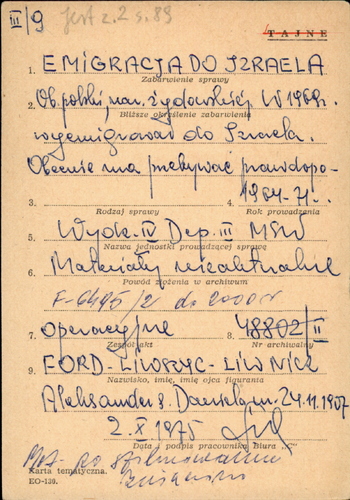 III/9 jest z. 2 s. 89
TAJNE
1. EMIGRACJA DO IZRAELA
Zabarwienie sprawy
2. Ob. polski, nar. żydowskiej. W 1969r.
Bliższe określenie zabarwienia
wyemigrował do Izraela.
Obecnie ma przebywać prawdopo-
3. 4. 1964-71r.
Rodzaj sprawy Rok prowadzenia
5. Wydz. IV Dep. III MSW
Nazwa jednostki prowadzącej sprawę
6. Materiały nieaktualne
Powód złożenia w archiwum
F-6495/2 do 2000r
7. operacyjne 8. 48802/II
Zespół akt Nr archiwalny
9. FORD-LIWSZYC-LIWNICZ
Nazwisko, imię, imię ojca figuranta
Aleksander s. Daniela, ur. 24.11.1907
2.X.1975
Data i podpis pracownika Biura „C"
po
Karta tematyczna.
EO-130.